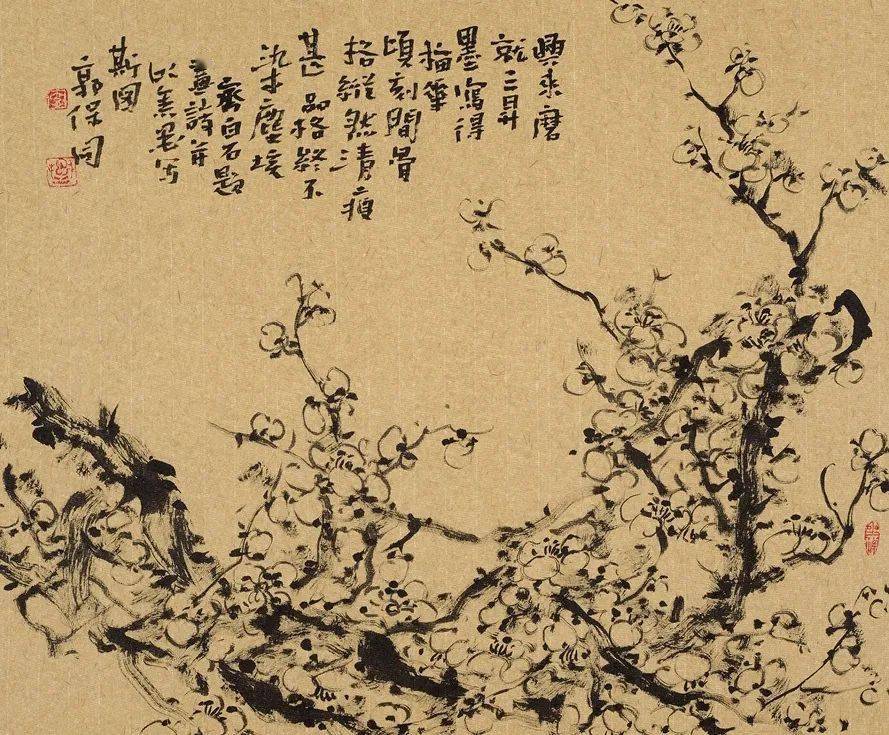 興來磨
就三昇
墨寫得
梅華
頃刻間骨
格縱然清瘦
甚品格終不
染半塵埃
齊白石題
畫詩并
以焦墨写
斯圖
郭保同